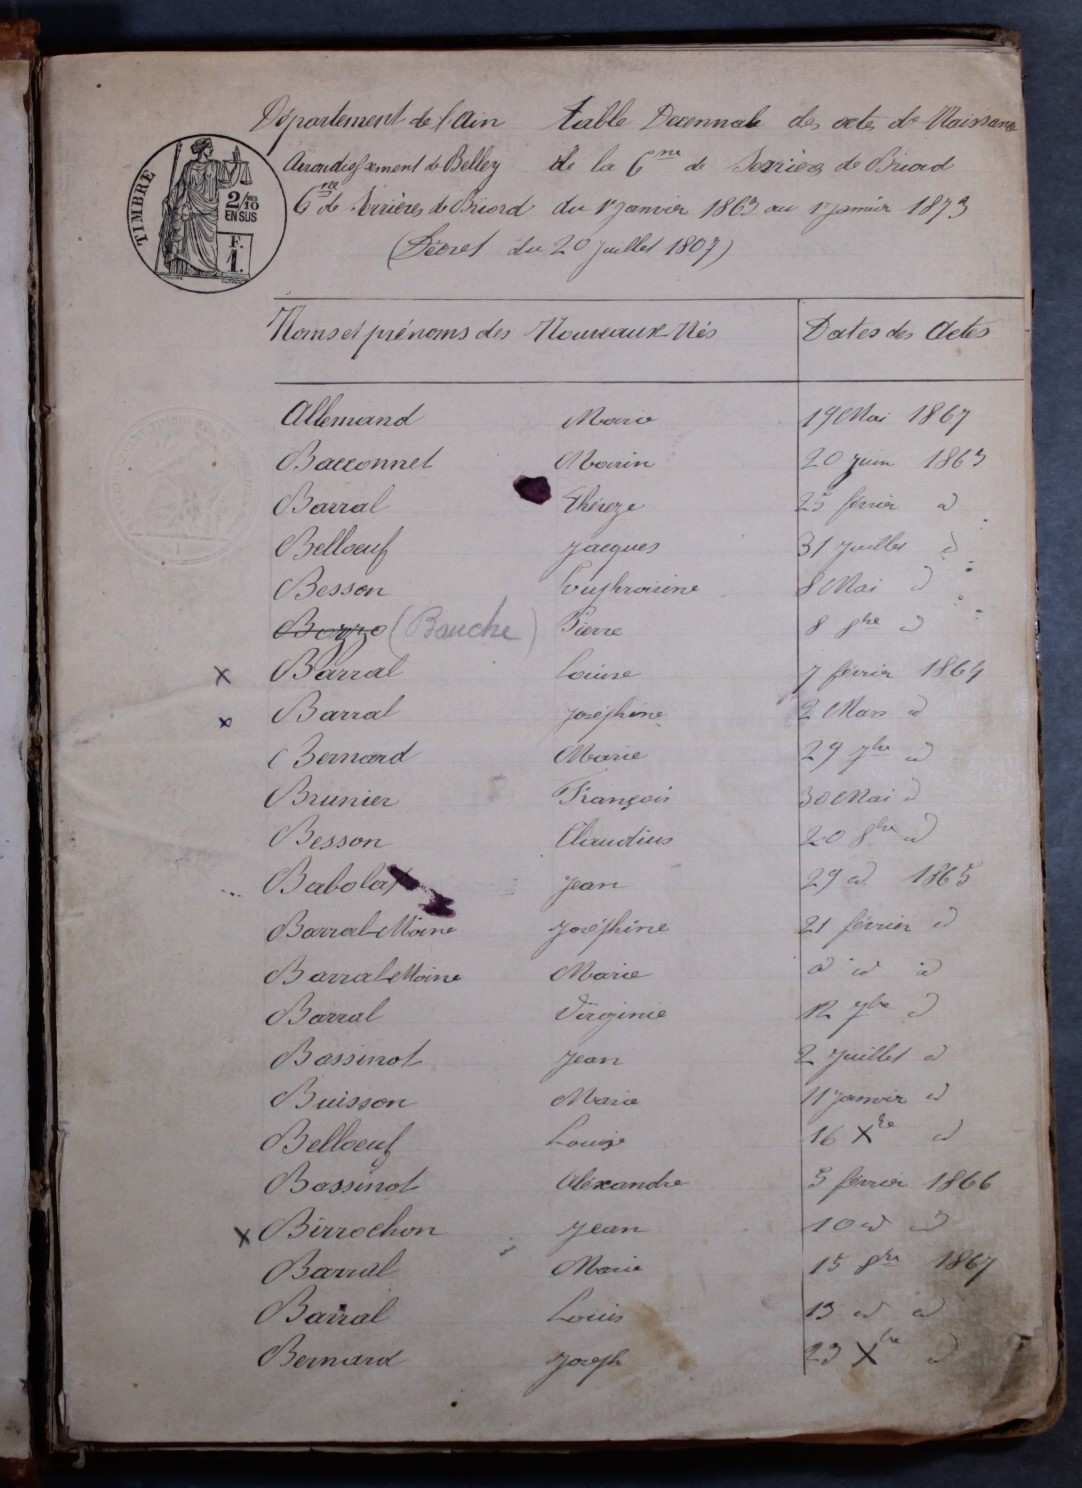 Département de l'Ain table Decennale des actes de Naissance
Arrondissement de Belley de la Cne de Serrières de Briord
Cne de Serrières de Briord du 1r janvier 1863 au 1r janvier 1873
(Décret du 20 juillet 1807)
TIMBRE
2/10 10
EN SUS
F.
1.
Noms et prénoms des Nouveaux Nés Dates des Actes
Allemand Marie 19 Mai 1867
Bacconnet Marin 20 juin 1863
Barral Thérèze 25 février d
Belloeuf Jacques 31 juillet d
Besson Euphroisine 8 Mai d
Bozzo (Bauche) Pierre 8 8bre d
x Barral Louise 7 février 1864
x Barral Joséphine 2 Mars d
Bernard Marie 29 7bre d
Brunier François 30 Mai d
Besson Claudius 20 8bre d
Babolat Jean 29 d 1865
Barral-Moine Joséphine 21 février d
Barral Moine Marie d d d
Barral Virginie 12 7bre d
Bassinot Jean 2 juillet d
Buisson Marie 11 janvier d
Belloeuf Louise 16 Xbre d
Bassinot Alexandre 5 février 1866
x Birrochon Jean 10 d d
Barral Marie 15 8bre 1867
Barral Louis 13 d d
Bernard Joseph 23 Xbre d